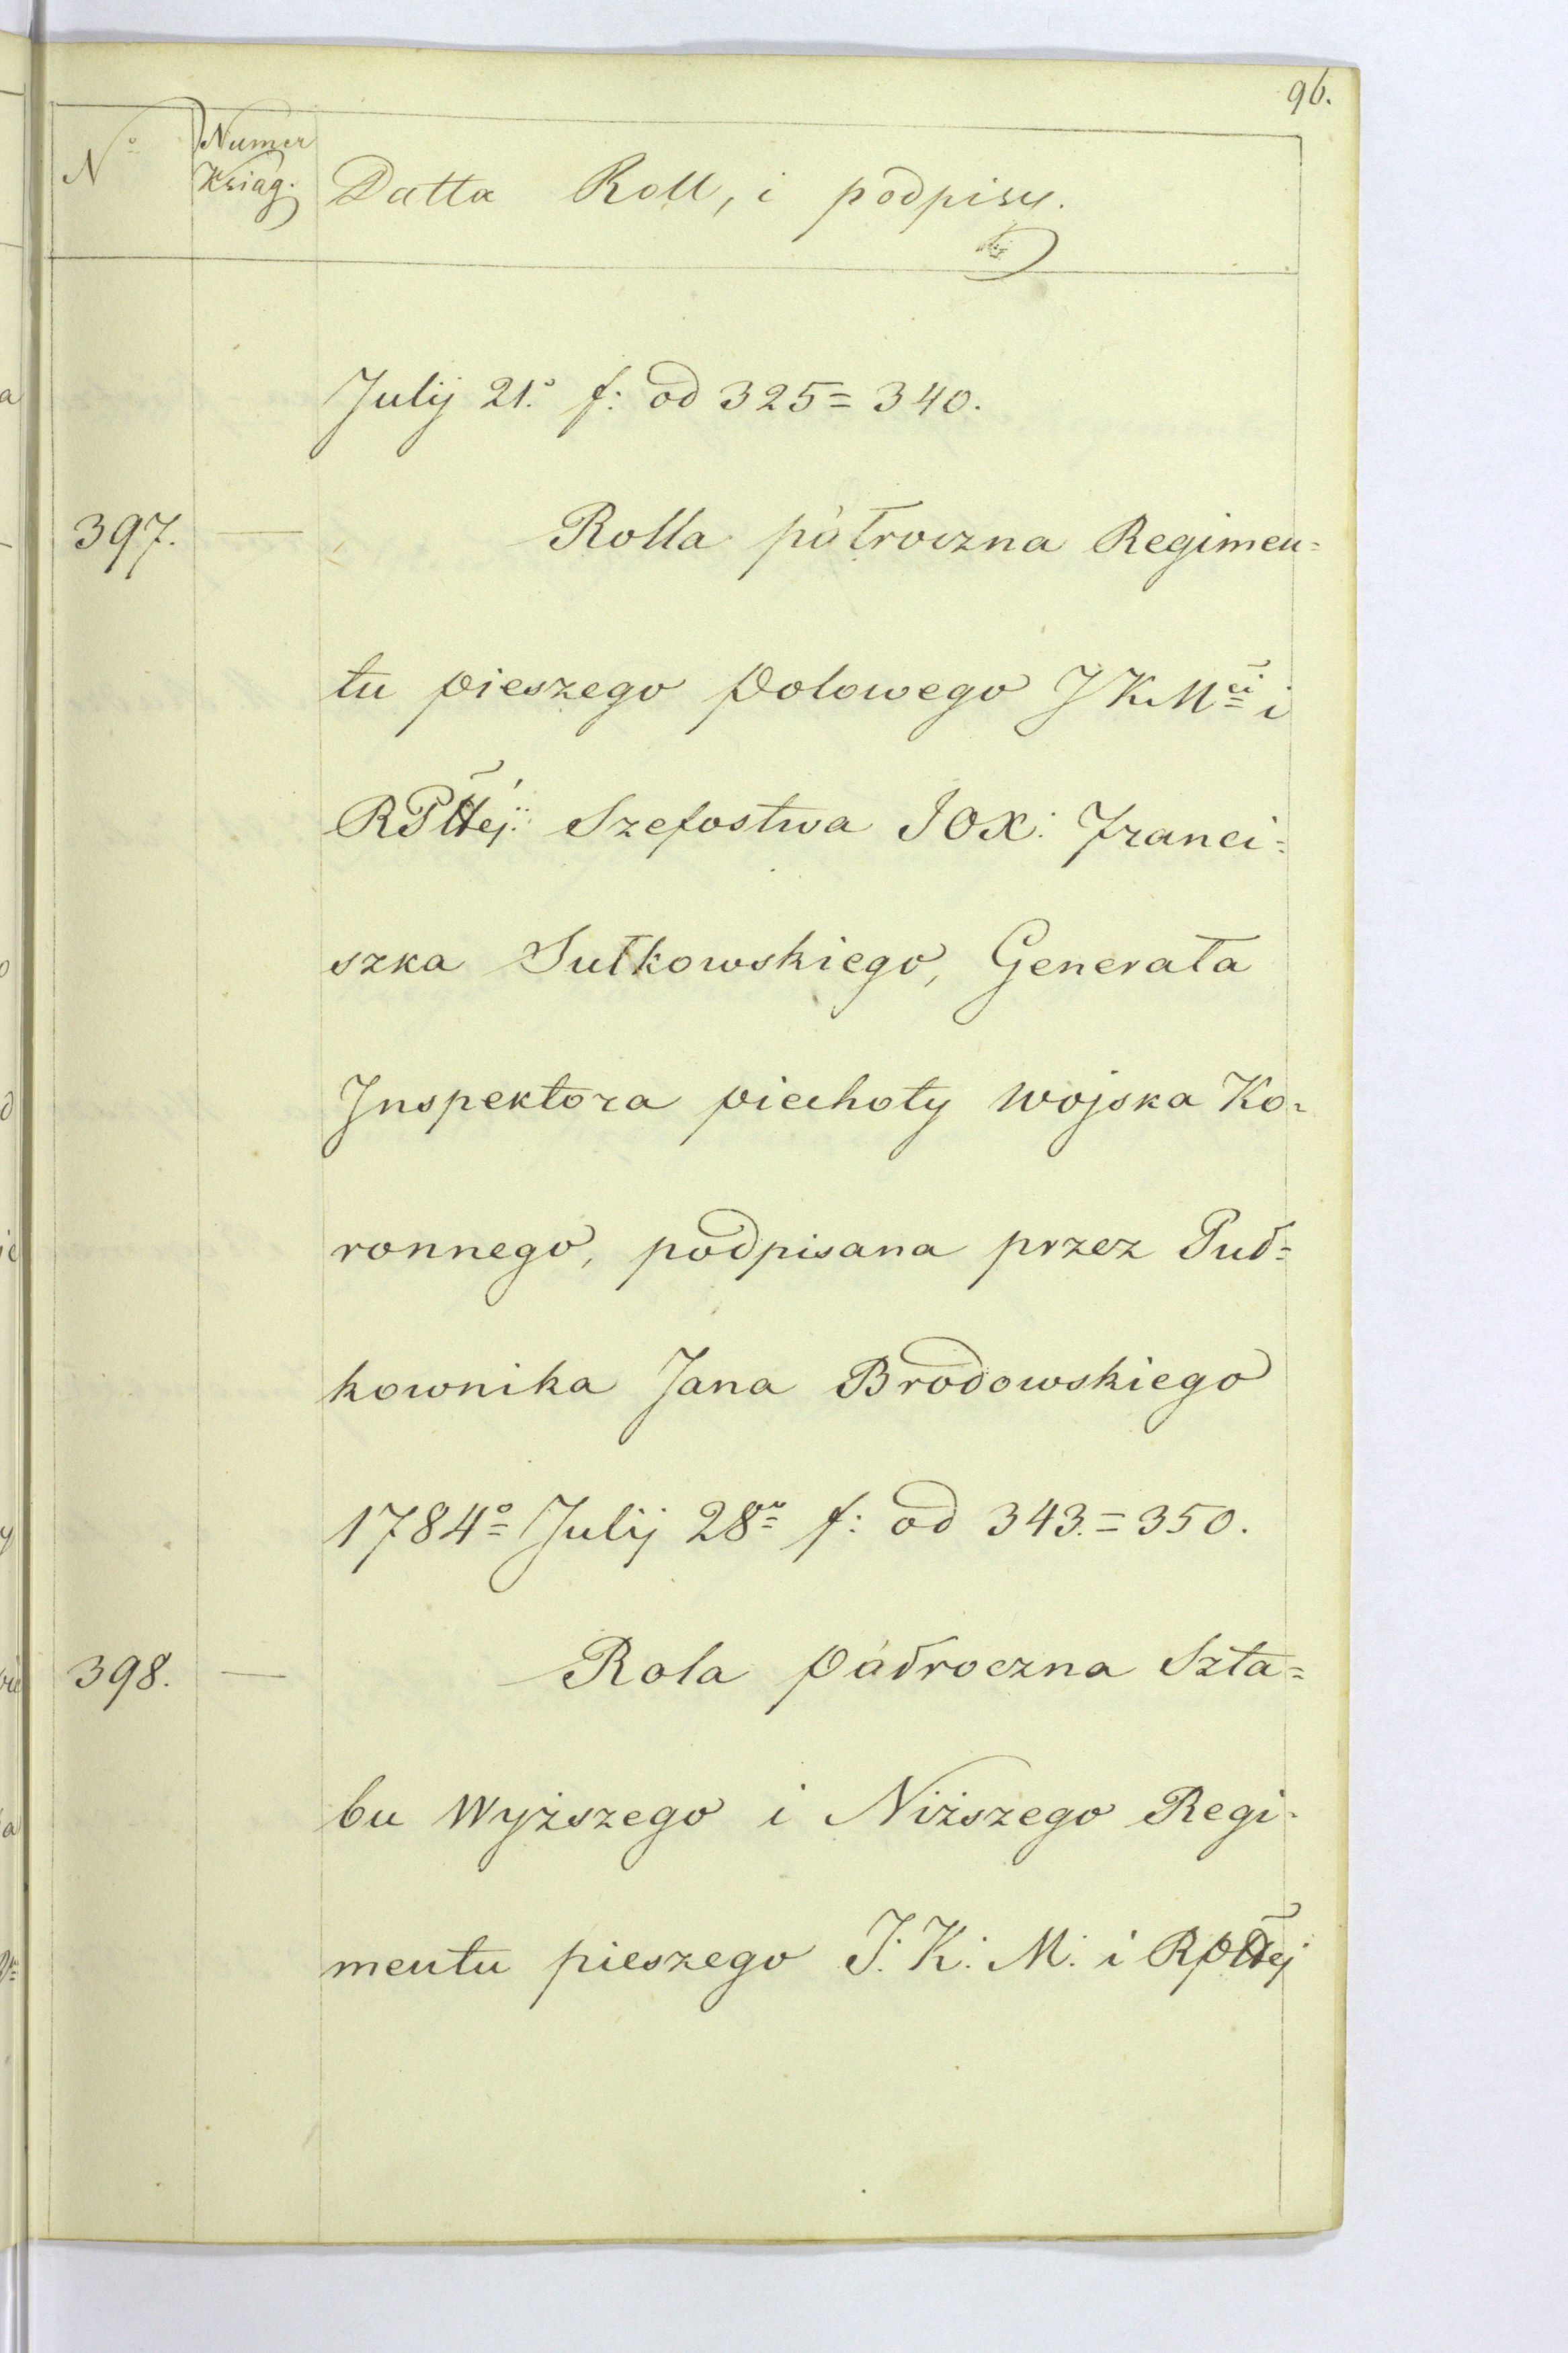 96.
Nº Numer Ksiąg. Datta Roll, i podpisy.
Julij 21.º f: od 325 = 340.
397. — Rolla półroczna Regimen=
tu pieszego Polowego JKMci i
RPltej: Szefostwa JOX: Franci=
szka Sułkowskiego, Generała
Inspektora piechoty Wojska Ko=
ronnego, podpisana przez Puł=
kownika Jana Brodowskiego
1784º Julij 28º f: od 343. = 350.
398. — Rola Półroczna Szta=
bu Wyższego i Niższego Regi=
mentu pieszego J: K: M: i RPltej